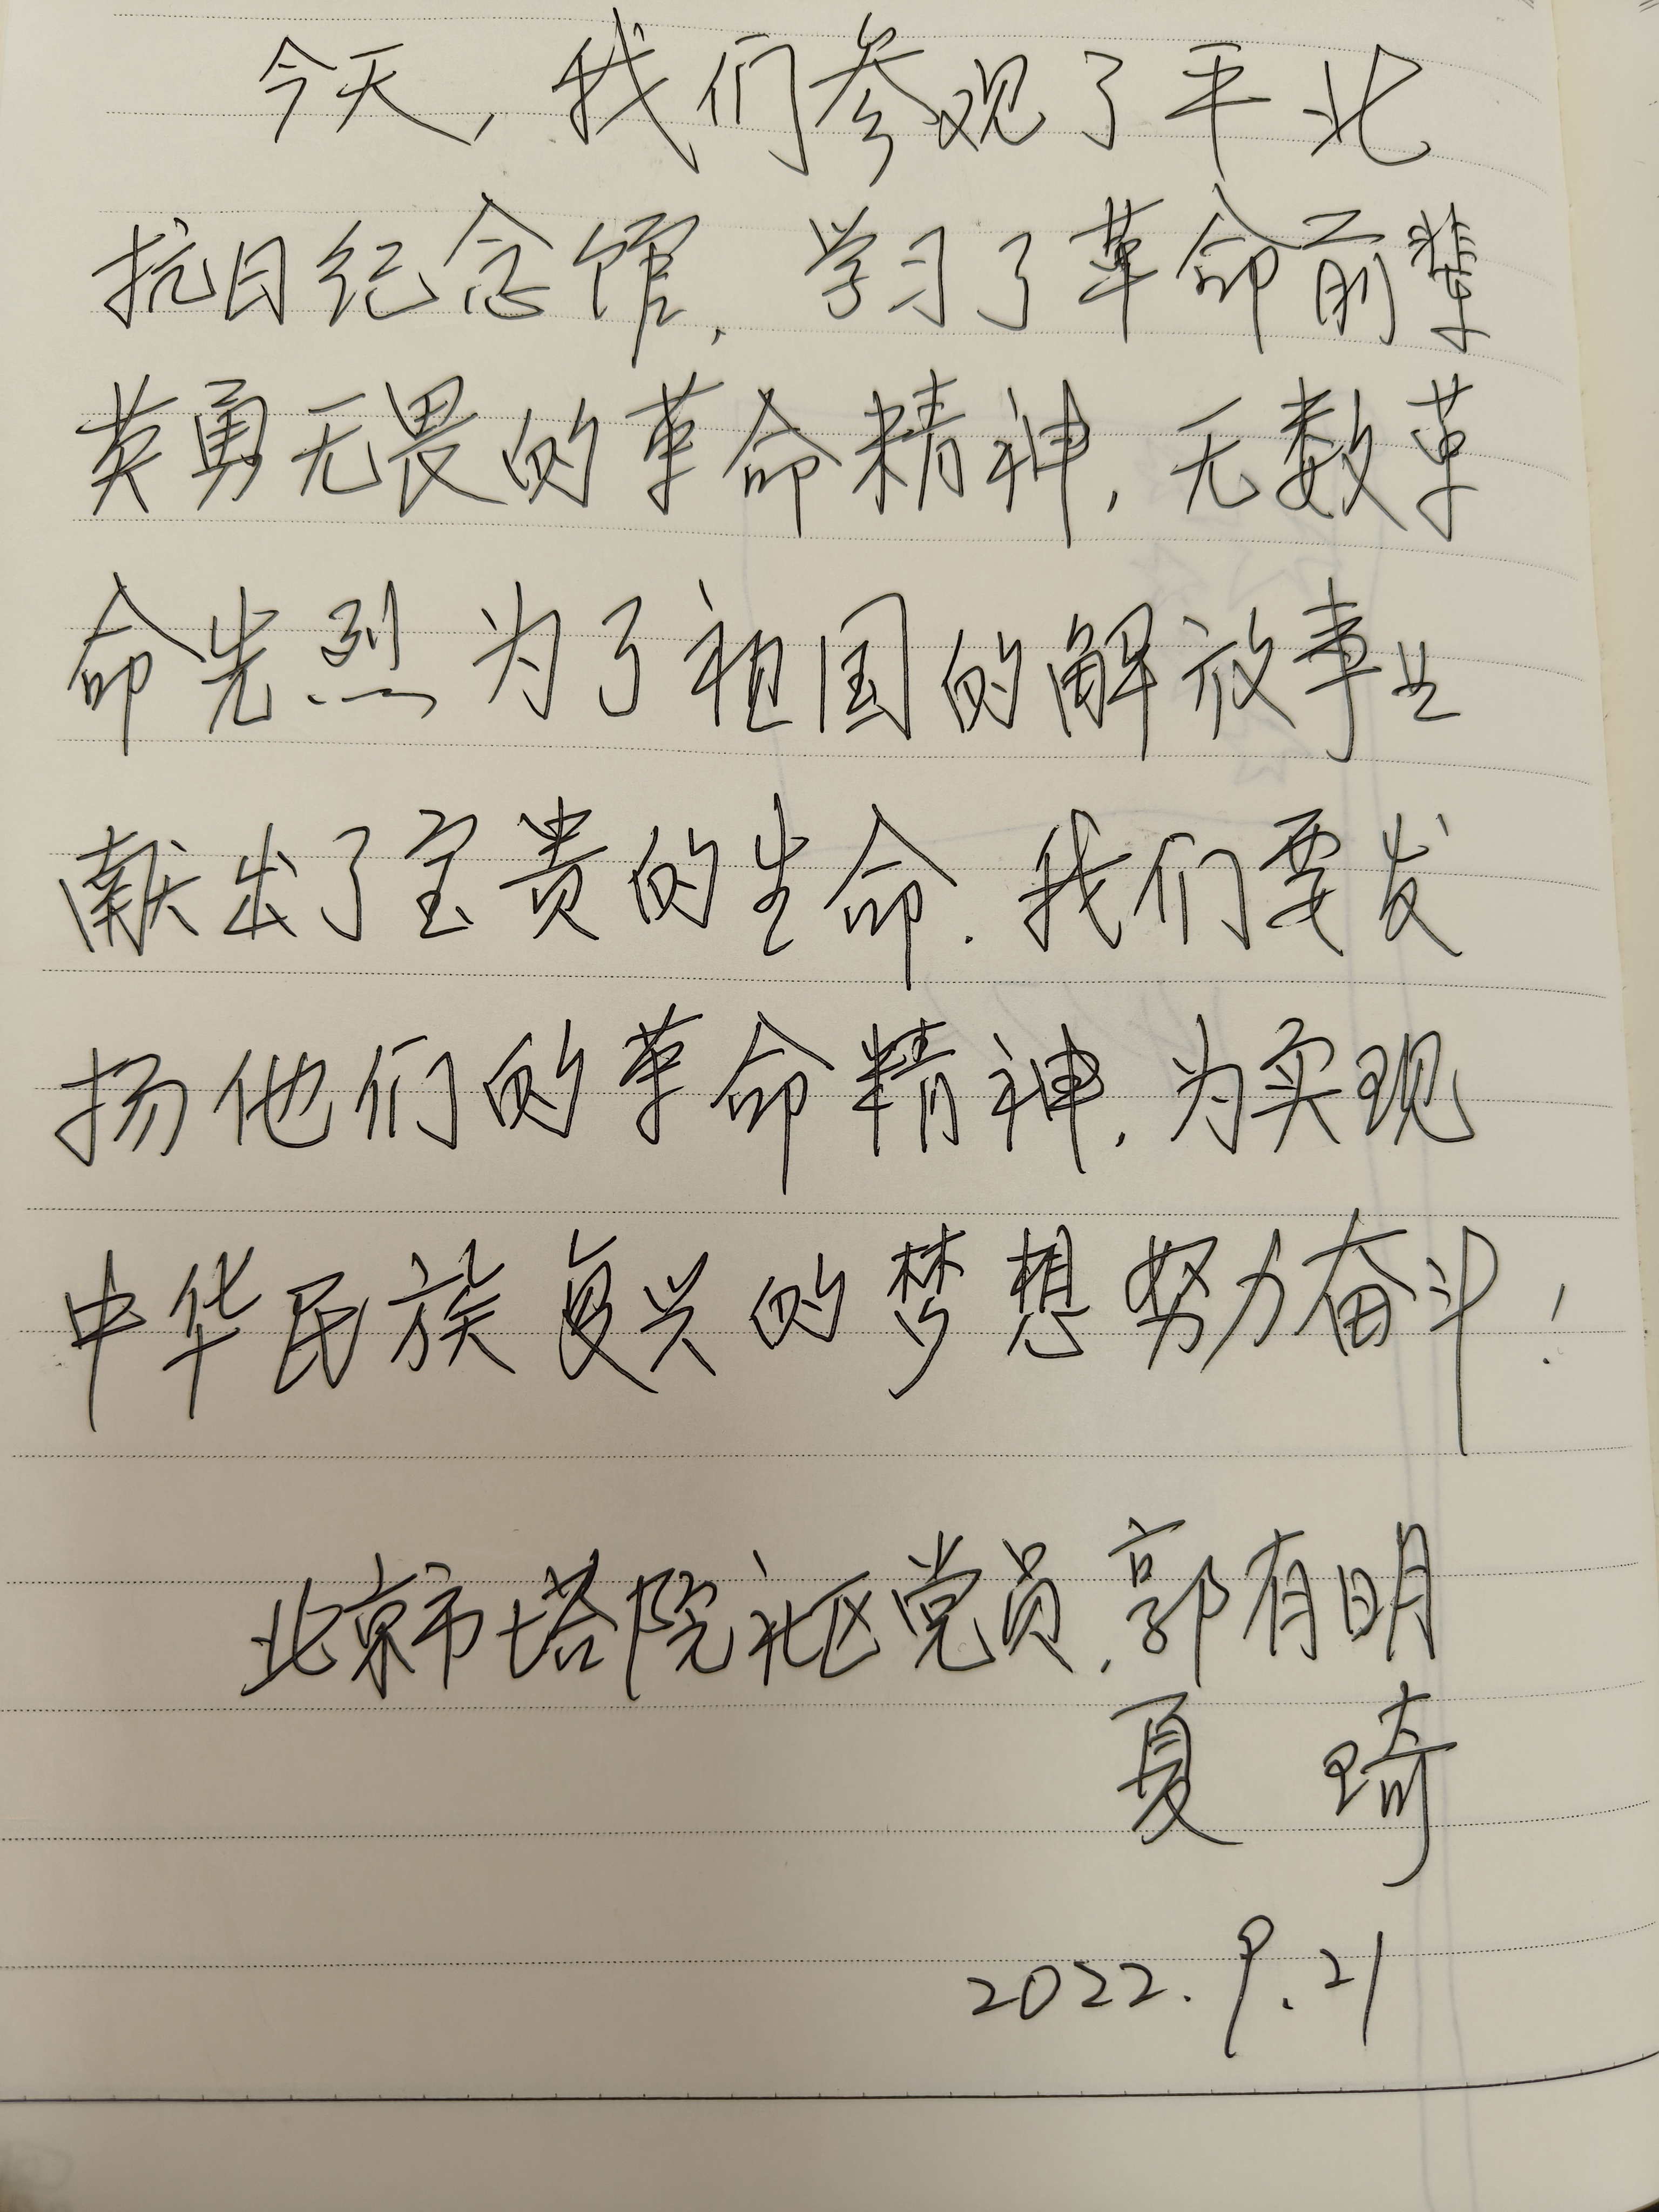 今天，我们参观了平北
抗日纪念馆，学习了革命前辈
英勇无畏的革命精神，无数革
命先烈为了祖国的解放事业
献出了宝贵的生命.我们要发
扬他们的革命精神，为实现
中华民族复兴的梦想努力奋斗！
北京市塔院社区党员，郭有明
夏 琦
2022.9.21